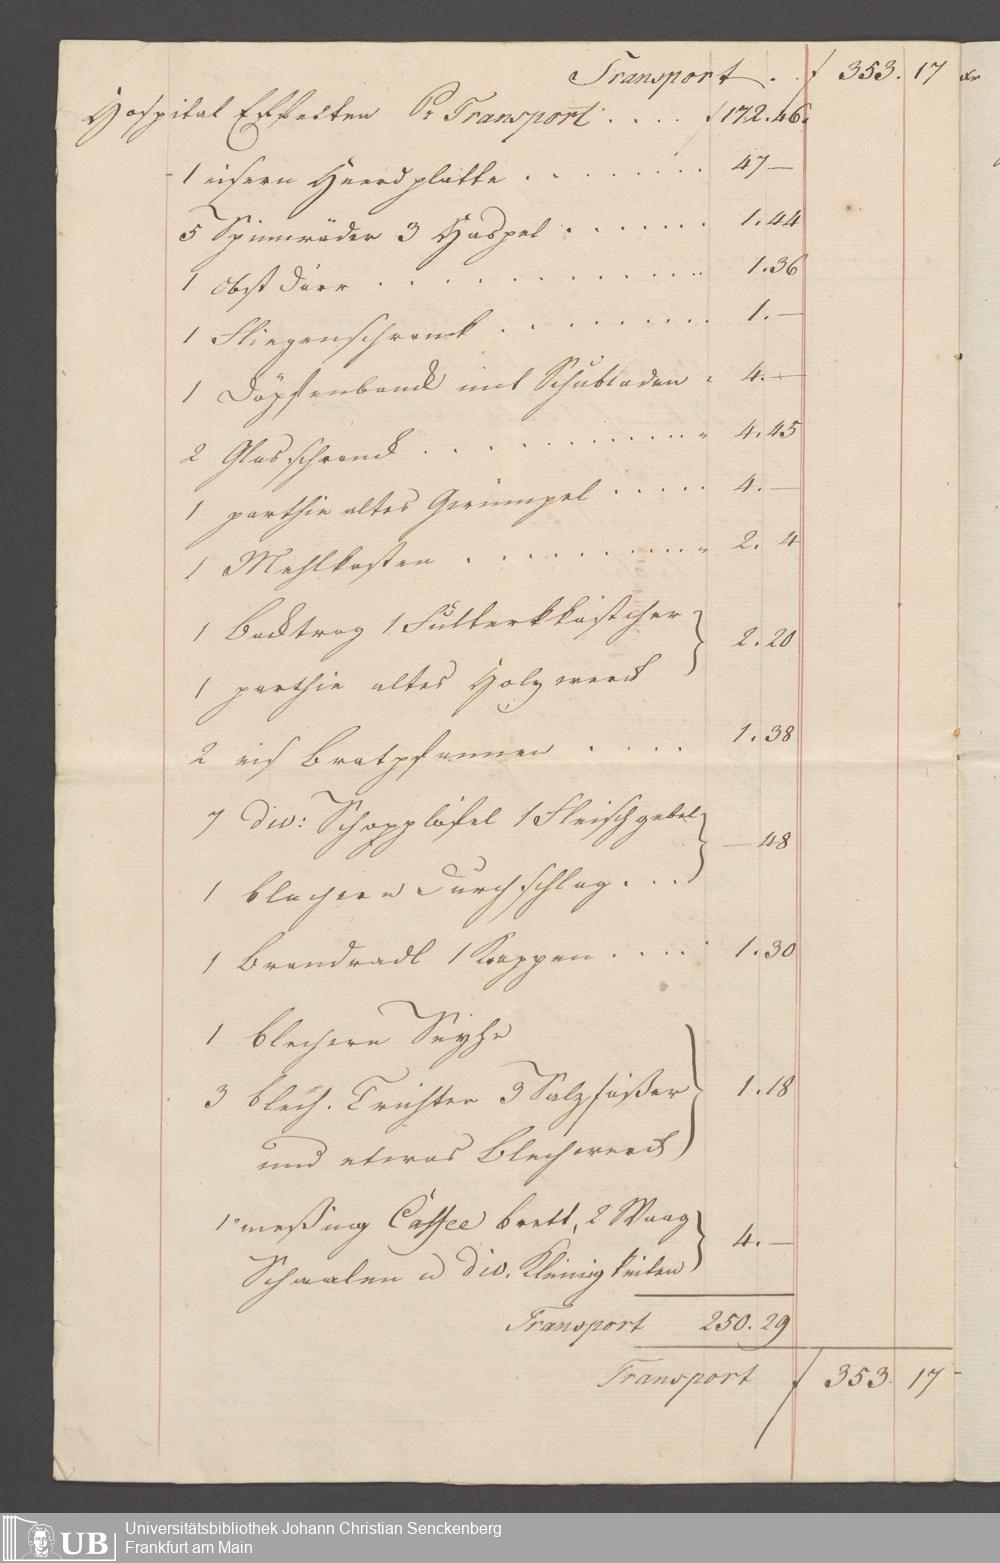 Transport . . f 353. 17 Xr
Hospital Effecten Pr Transport . . . . f 172.46.
1 eisern Heerdplatte . . . . . . . . 47 —
5 Spinnräder 3 Haspel . . . . . . . 1.44
1 obst Dörr . . . . . . . . . . . . 1.36
1 Fliegenschranck . . . . . . . . . 1. —
1 Döpffenbanck mit Schubladen . 4. —
2 Glasschranck . . . . . . . . . . . 4.45
1 parthie altes Gerümpel . . . . . 4. —
1 Mehlkasten . . . . . . . . . . . 2. 4
1 Backtrog 1 Futterkkästcher
1 parthie altes Holzwerck } 2.20
2 eis Bratpfannen . . . . 1.38
7 div: Schopplöfel 1 Fleischgabel
1 blechern Durchschlag . . . } — 48
1 Brandradl 1 Kappen . . . . . 1.30
1 blechern Seyhe
3 blech. Trichter 3 Salzfäßer } 1.18
und etwas Blechwerck
1 meßing Caffee brett, 2 Waag
Schaalen u div. Kleinigkeiten } 4. —
Transport 250.29
Transport f 353. 17 -
UB Universitätsbibliothek Johann Christian Senckenberg
Frankfurt am Main